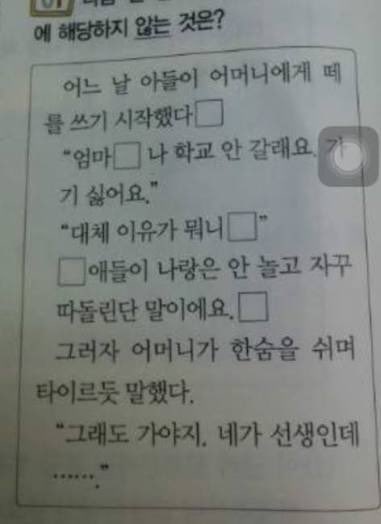 01
에 해당하지 않는 것은?
어느 날 아들이 어머니에게 떼
를 쓰기 시작했다□
“엄마□ 나 학교 안 갈래요. 가
기 싫어요.”
“대체 이유가 뭐니□”
□애들이 나랑은 안 놀고 자꾸
따돌린단 말이에요.□
그러자 어머니가 한숨을 쉬며
타이르듯 말했다.
“그래도 가야지. 네가 선생인데
…….”